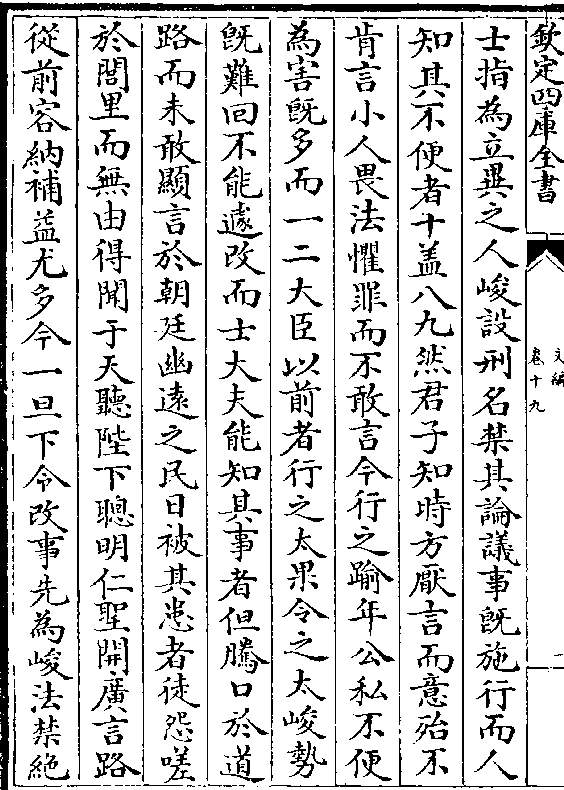 欽定四庫全書
文編
卷十九
一
士指為立異之人峻設刑名禁其論議事既施行而人
知其不便者十盖八九然君子知時方厭言而意殆不
肯言小人畏法懼罪而不敢言今行之踰年公私不便
為害既多而一二大臣以前者行之太果令之太峻勢
既難回不能遽改而士大夫能知其事者但騰口於道
路而未敢顯言於朝廷幽遠之民日被其患者徒怨嗟
於閭里而無由得聞于天聽陛下聰明仁聖開廣言路
從前容納補益尤多今一旦下令改事先為峻法禁絶